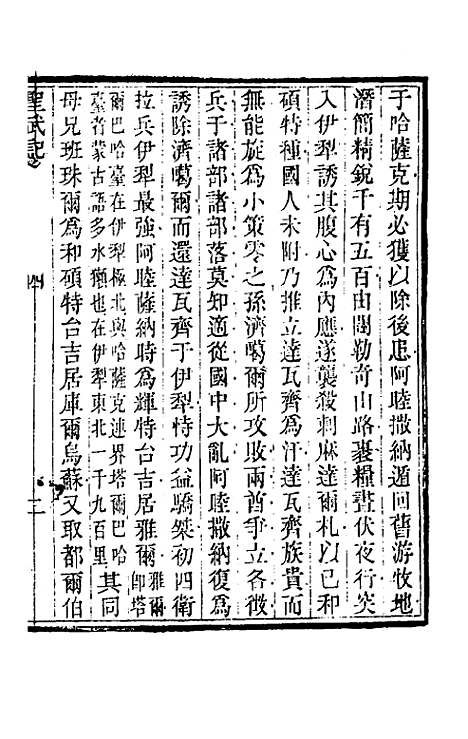 于哈薩克期必獲以除後患阿睦撒納遁回舊游牧地
潛簡精銳千有五百由闥勒奇山路裹糧晝伏夜行突
入伊犁誘其腹心為內應遂襲殺刺麻達爾札以己和
碩特種國人未附乃推立達瓦齊為汗達瓦齊族貴而
無能旋為小策零之孫濟噶爾所攻敗兩酋爭立各徵
兵于諸部諸部落莫知適從國中大亂阿睦撒納復為
誘除濟噶爾而還達瓦齊于伊犁恃功益驕桀初四衛
拉兵伊犁最強阿睦薩納時為輝特台吉居雅爾雅爾卽塔
爾巴哈臺在伊犁極北與哈薩克連界塔爾巴哈
臺者蒙古語多水獺也在伊犁東北一千九百里其同
母兄班珠爾為和碩特台吉居庫爾烏蘇又取都爾伯
聖武記卷四
三